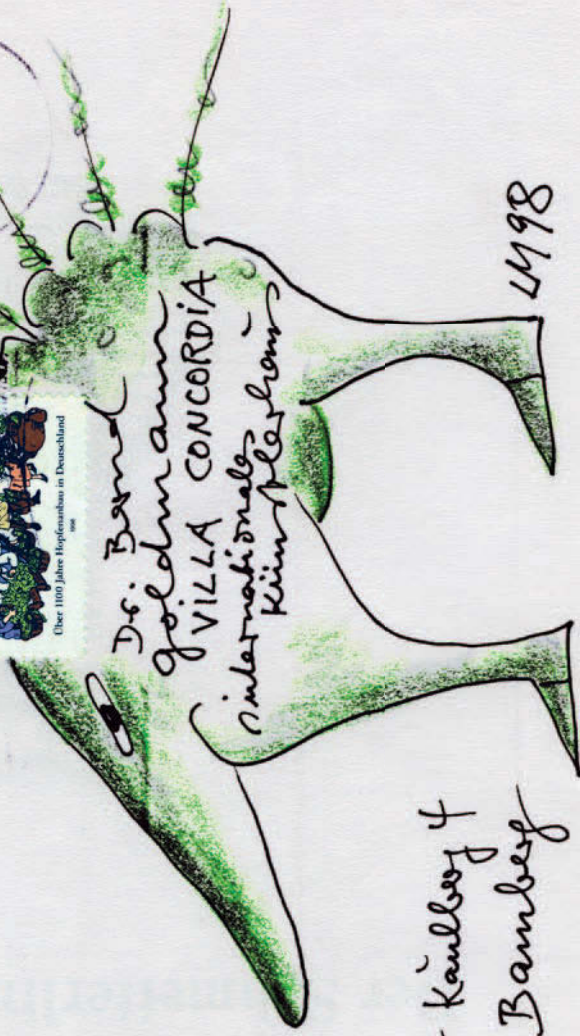 Über 1100 Jahre Hopfenanbau in Deutschland
1998
Dr. Bernd
Goldmann
VILLA CONCORDIA
internationales
Künstlerhaus
Kaulberg 4
Bamberg
LM98